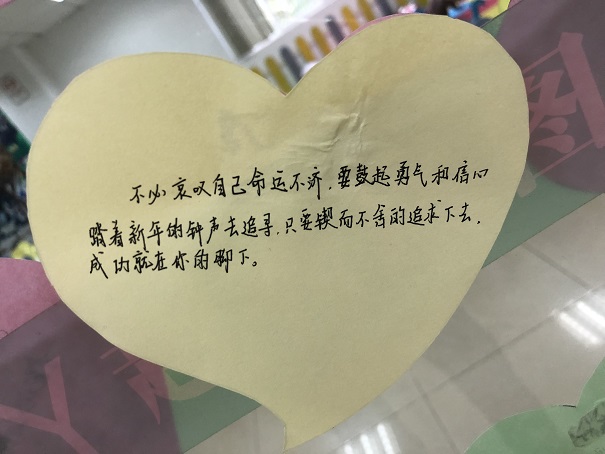 不必哀叹自己命运不济,要鼓起勇气和信心
踏着新年的钟声去追寻,只要锲而不舍的追求下去,
成功就在你的脚下。
图